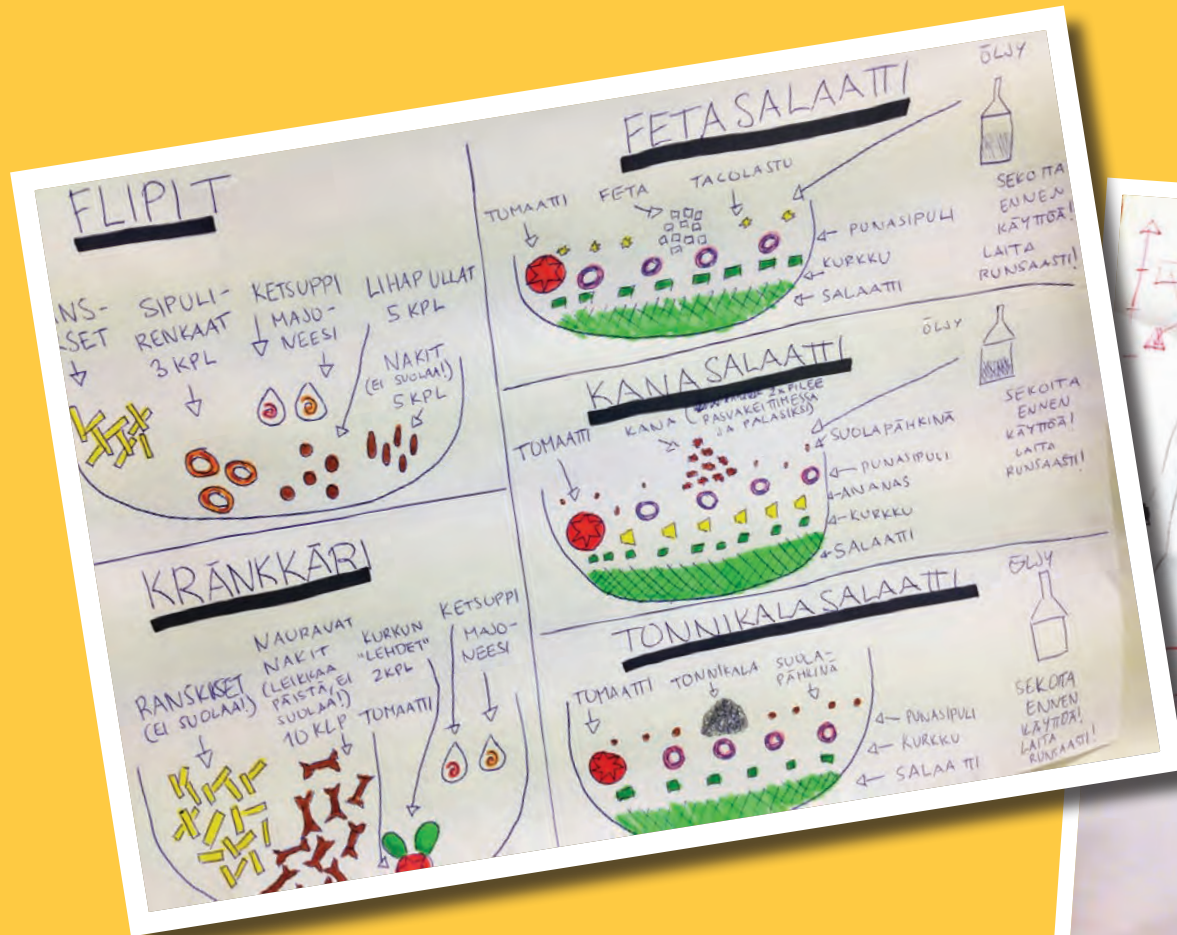 FLIPIT
NS-
SET
SIPULI-
RENKAAT
3 KPL
KETSUPPI
MAJO-
NEESI
LIHAPULLAT
5 KPL
NAKIT
(EI SUOLAA!)
5 KPL
KRÄNKKÄRI
RANSKISET
(EI SUOLAA!)
NAURAVAT
NAKIT
(LEIKKAA
PÄISTÄ, EI
SUOLAA!)
10 KLP
KURKUN
"LEHDET"
2KPL
TOMAATTI
KETSUPPI
MAJO-
NEESI
FETASALAATTI
TOMAATTI
FETA
TACOLASTU
PUNASIPULI
KURKKU
SALAATTI
ÖLJY
SEKOITA
ENNEN
KÄYTTÖÄ!
LAITA
RUNSAASTI!
KANASALAATTI
TOMAATTI
KANA
PASVAKEITTIMESSA
JA PALASIKSI)
SUOLAPÄHKINÄ
PUNASIPULI
ANANAS
KURKKU
SALAATTI
ÖLJY
SEKOITA
ENNEN
KÄYTTÖÄ!
LAITA
RUNSAASTI!
TONNIKALASALAATTI
TOMAATTI
TONNIKALA
SUOLA-
PÄHKINÄ
PUNASIPULI
KURKKU
SALAATTI
ÖLJY
SEKOITA
ENNEN
KÄYTTÖÄ!
LAITA
RUNSAASTI!